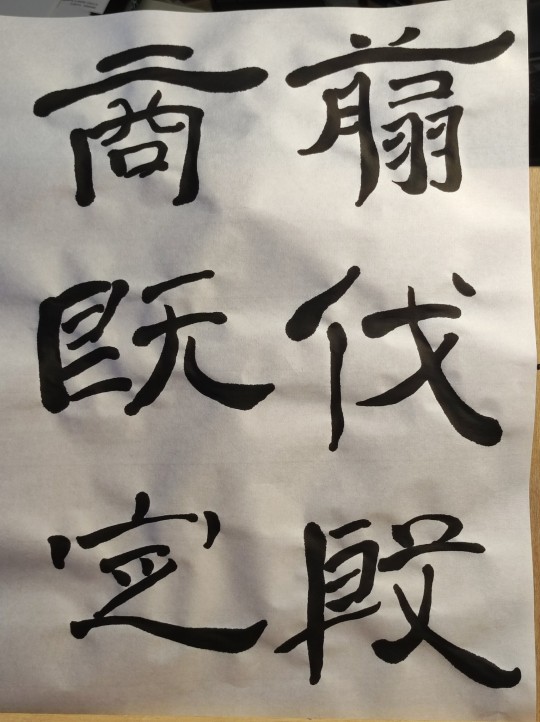 翦伐殷
商既定